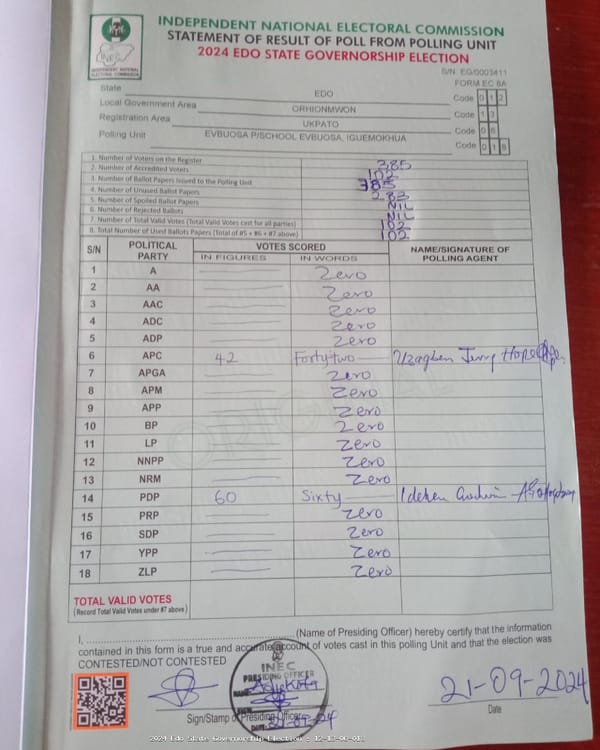 INDEPENDENT NATIONAL ELECTORAL COMMISSION
STATEMENT OF RESULT OF POLL FROM POLLING UNIT
2024 EDO STATE GOVERNORSHIP ELECTION
INEC
INDEPENDENT NATIONAL ELECTORAL COMMISSION
S/N EG/0003411
FORM EC 8A
State EDO Code 0 1 2
Local Government Area ORHIONMWON Code 1 3
Registration Area UKPATO Code 0 6
Polling Unit EVBUOSA P/SCHOOL EVBUOSA, IGUEMOKHUA Code 0 1 8
1. Number of Voters on the Register 385
2. Number of Accredited Voters 102
3. Number of Ballot Papers Issued to the Polling Unit 385
4. Number of Unused Ballot Papers 283
5. Number of Spoiled Ballot Papers NIL
6. Number of Rejected Ballots NIL
7. Number of Total Valid Votes (Total Valid Votes cast for all parties) 102
8. Total Number of Used Ballots Papers (Total of #5 + #6 + #7 above) 102
S/N POLITICAL PARTY VOTES SCORED NAME/SIGNATURE OF POLLING AGENT
IN FIGURES IN WORDS
1 A Zero
2 AA Zero
3 AAC Zero
4 ADC Zero
5 ADP Zero
6 APC 42 Forty-two Jerry Hope
7 APGA Zero
8 APM Zero
9 APP Zero
10 BP Zero
11 LP Zero
12 NNPP Zero
13 NRM Zero
14 PDP 60 Sixty Idehen Godwin
15 PRP Zero
16 SDP Zero
17 YPP Zero
18 ZLP Zero
TOTAL VALID VOTES
(Record Total Valid Votes under #7 above)
I, (Name of Presiding Officer) hereby certify that the information
contained in this form is a true and accurate account of votes cast in this polling Unit and that the election was
CONTESTED/NOT CONTESTED
INEC
PRESIDING OFFICER
NAME:
SIGN:
DATE: 21-09-24
21-09-2024
Sign/Stamp of Presiding Officer
Date
2024 Edo State Governorship Election - 12-13-06-018